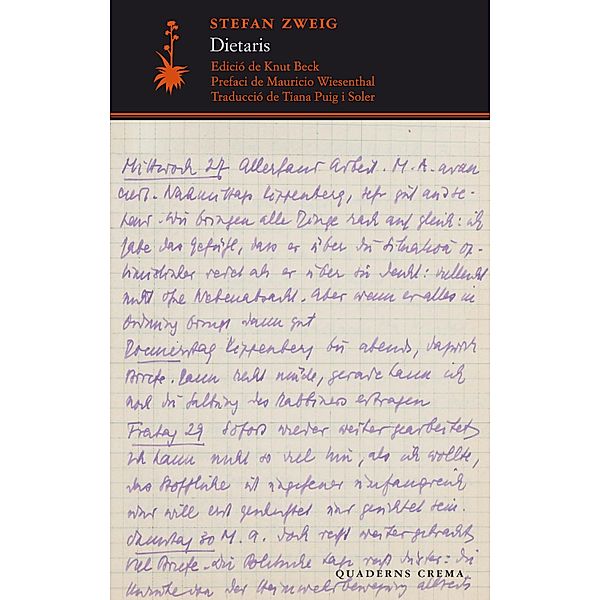 STEFAN ZWEIG
Dietaris
Edició de Knut Beck
Prefaci de Mauricio Wiesenthal
Traducció de Tiana Puig i Soler
Mittwoch 27 Allerhand Arbeit. M. A. avan
ciert. Nachmittags Kippenberg, sehr gut und
Wir bringen alle Dinge rasch auf gleich: ich
habe das Gefühl, dass er über die Situation op-
timistischer redet als er über sie denkt: vielleicht
nicht ohne Nebenabsicht. Aber wenn er alles in
Ordnung bringt dann gut
Donnerstag Kippenberg bis abends,
Briefe. Dann recht müde, gerade kann ich
noch die des Rabbiners ertragen
Freitag 29 Sofort wieder weitergearbeitet
ich kann nicht so viel tun, als ich wollte,
das Stoffliche ist ungeheuer umfangreich
und will erst und gesichtet sein.
Samstag 30 M. A. doch weiter gebracht
viel Briefe. Die Politische Lage recht düster: die
der Heimwehrbewegung
QUADERNS CREMA